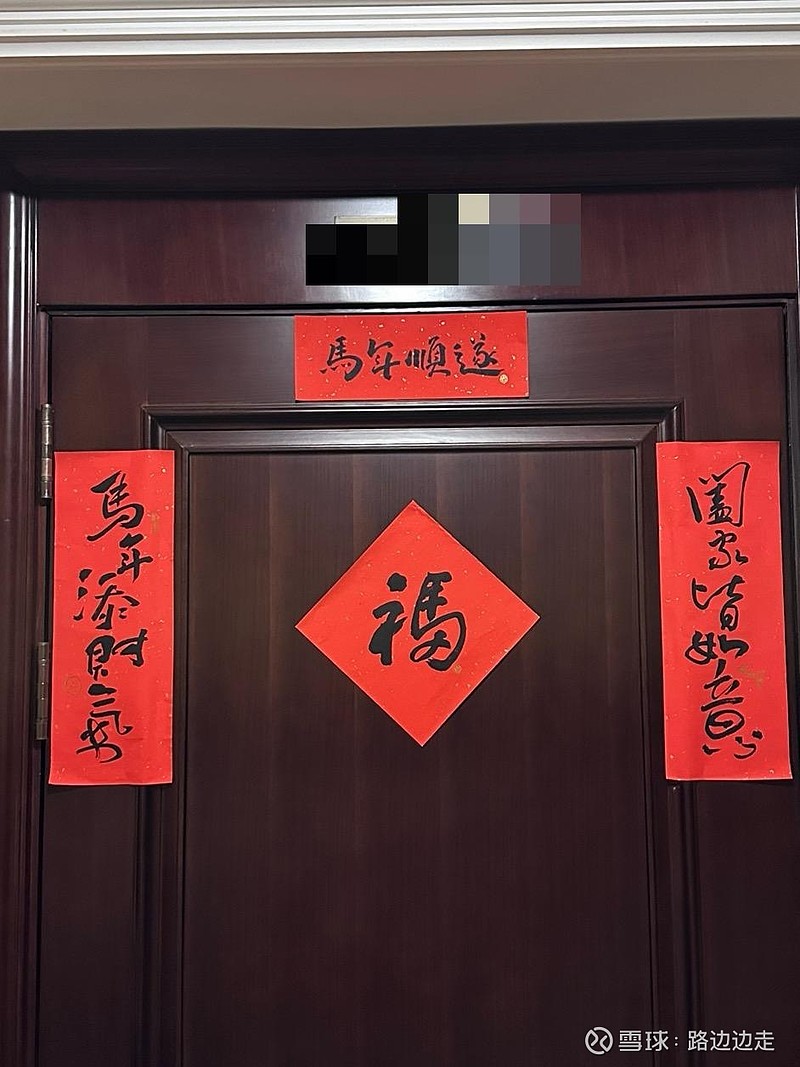 馬年順遂
馬年添財氣
闔家皆如意
福
雪球：路边边走